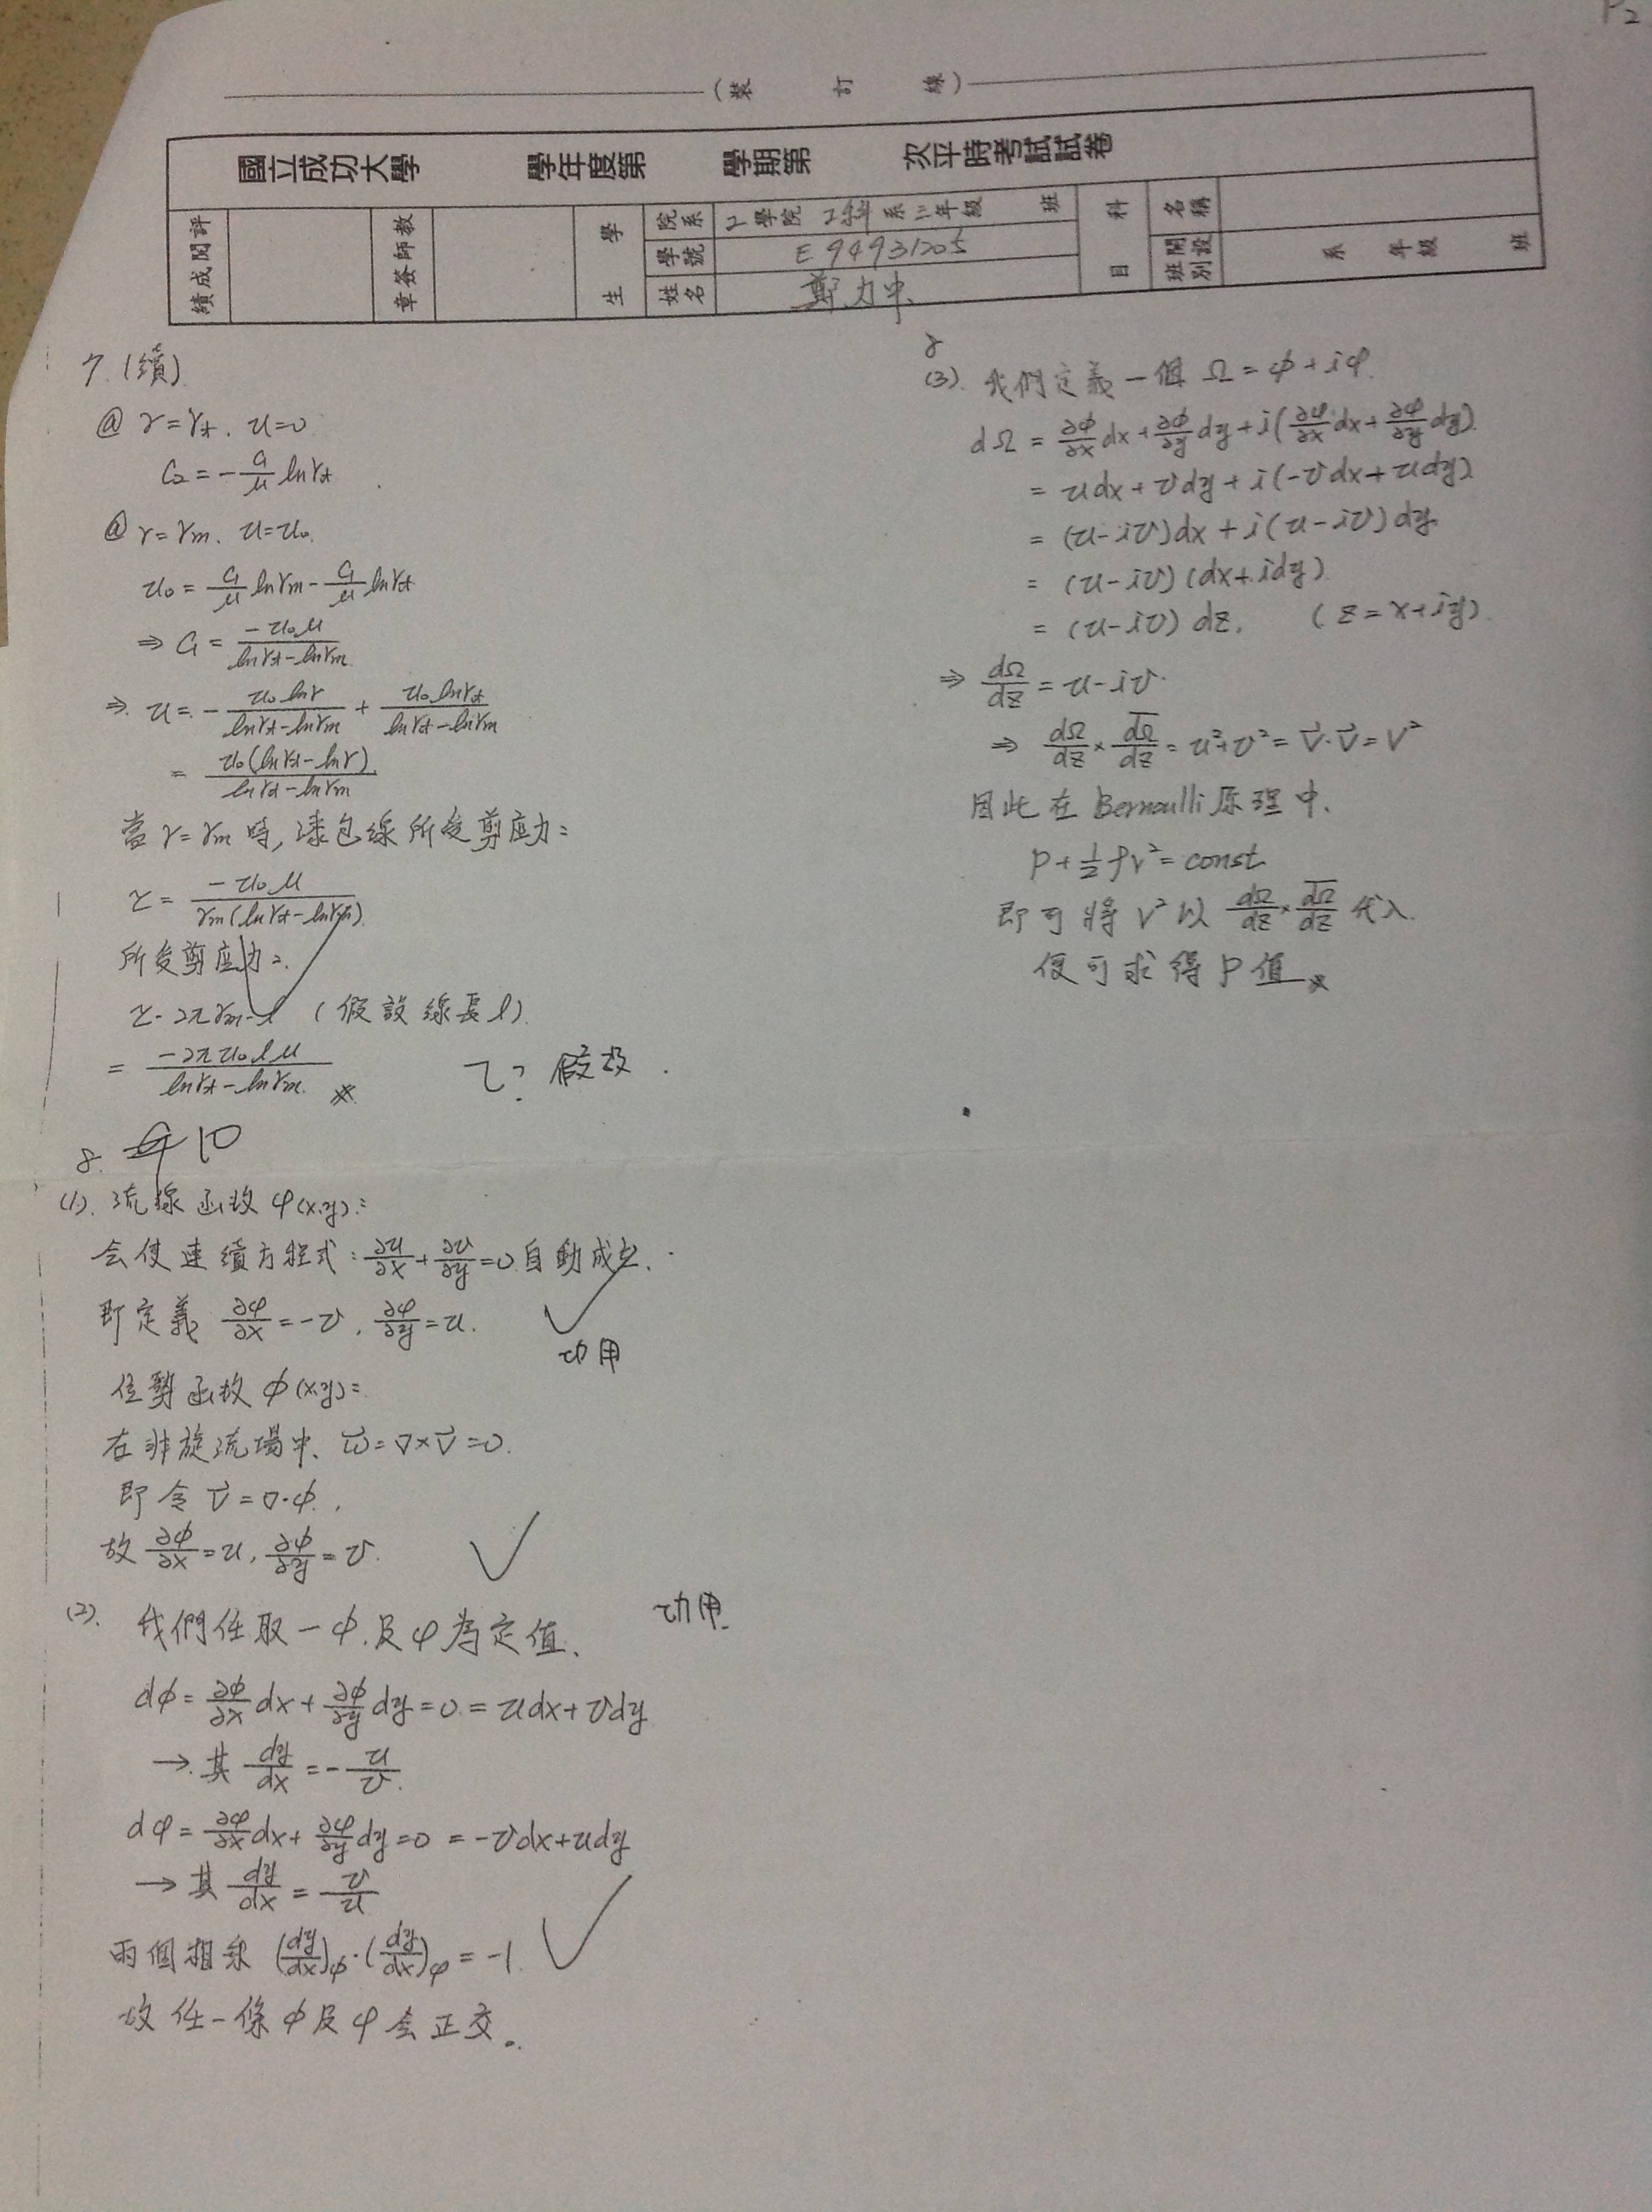 P2
(裝 訂 線)
國立成功大學 學年度第 學期第 次平時考試試卷
績成閱評
章簽師教
學生
院系 工學院 工科系三年級 班
學號 E94931205
姓名 鄭力中
科目
名稱
班別 開設 系 年級 班
7.(續)
@ r=rt. u=0
C2 = -C1/μ ln rt
@ r=rm. u=u0.
u0 = C1/μ ln rm - C1/μ ln rt
⇒ C1 = -u0μ/(ln rt - ln rm)
⇒ u = -u0 ln r/(ln rt - ln rm) + u0 ln rt/(ln rt - ln rm)
= u0(ln rt - ln r)/(ln rt - ln rm)
當 r=rm 時, 漆包線所受剪應力:
τ = -u0μ/(rm(ln rt - ln rm))
所受剪應力:
τ·2πrm·l (假設線長l)
= -2πu0lμ/(ln rt - ln rm) ※
τ? 假設.
8. 10
(1). 流線函数 φ(x,y):
会使連續方程式: ∂u/∂x + ∂v/∂y = 0 自動成立.
即定義 ∂φ/∂x = -v, ∂φ/∂y = u.
功用
位勢函数 ϕ(x,y):
在非旋流場中, ω⃗ = ∇×V⃗ = 0.
即令 V⃗ = ∇·ϕ.
故 ∂ϕ/∂x = u, ∂ϕ/∂y = v.
功用.
(2). 我們任取一ϕ.及φ為定值.
dϕ = ∂ϕ/∂x dx + ∂ϕ/∂y dy = 0 = udx + vdy
→ 其 dy/dx = -u/v.
dφ = ∂φ/∂x dx + ∂φ/∂y dy = 0 = -vdx + udy
→ 其 dy/dx = v/u
兩個相乘 (dy/dx)ϕ·(dy/dx)φ = -1.
故任一條ϕ及φ会正交.
8
(3). 我們定義一個 Ω = ϕ + iφ.
dΩ = ∂ϕ/∂x dx + ∂ϕ/∂y dy + i(∂φ/∂x dx + ∂φ/∂y dy)
= udx + vdy + i(-vdx + udy)
= (u-iv)dx + i(u-iv)dy.
= (u-iv)(dx+idy)
= (u-iv)dz. (z=x+iy).
⇒ dΩ/dz = u-iv.
⇒ dΩ/dz × d̅Ω̅/dz = u²+v² = V⃗·V⃗ = V²
因此在Bernoulli原理中.
P + 1/2 ρv² = const
即可將 V² 以 dΩ/dz × d̅Ω̅/dz 代入.
便可求得P值 ※